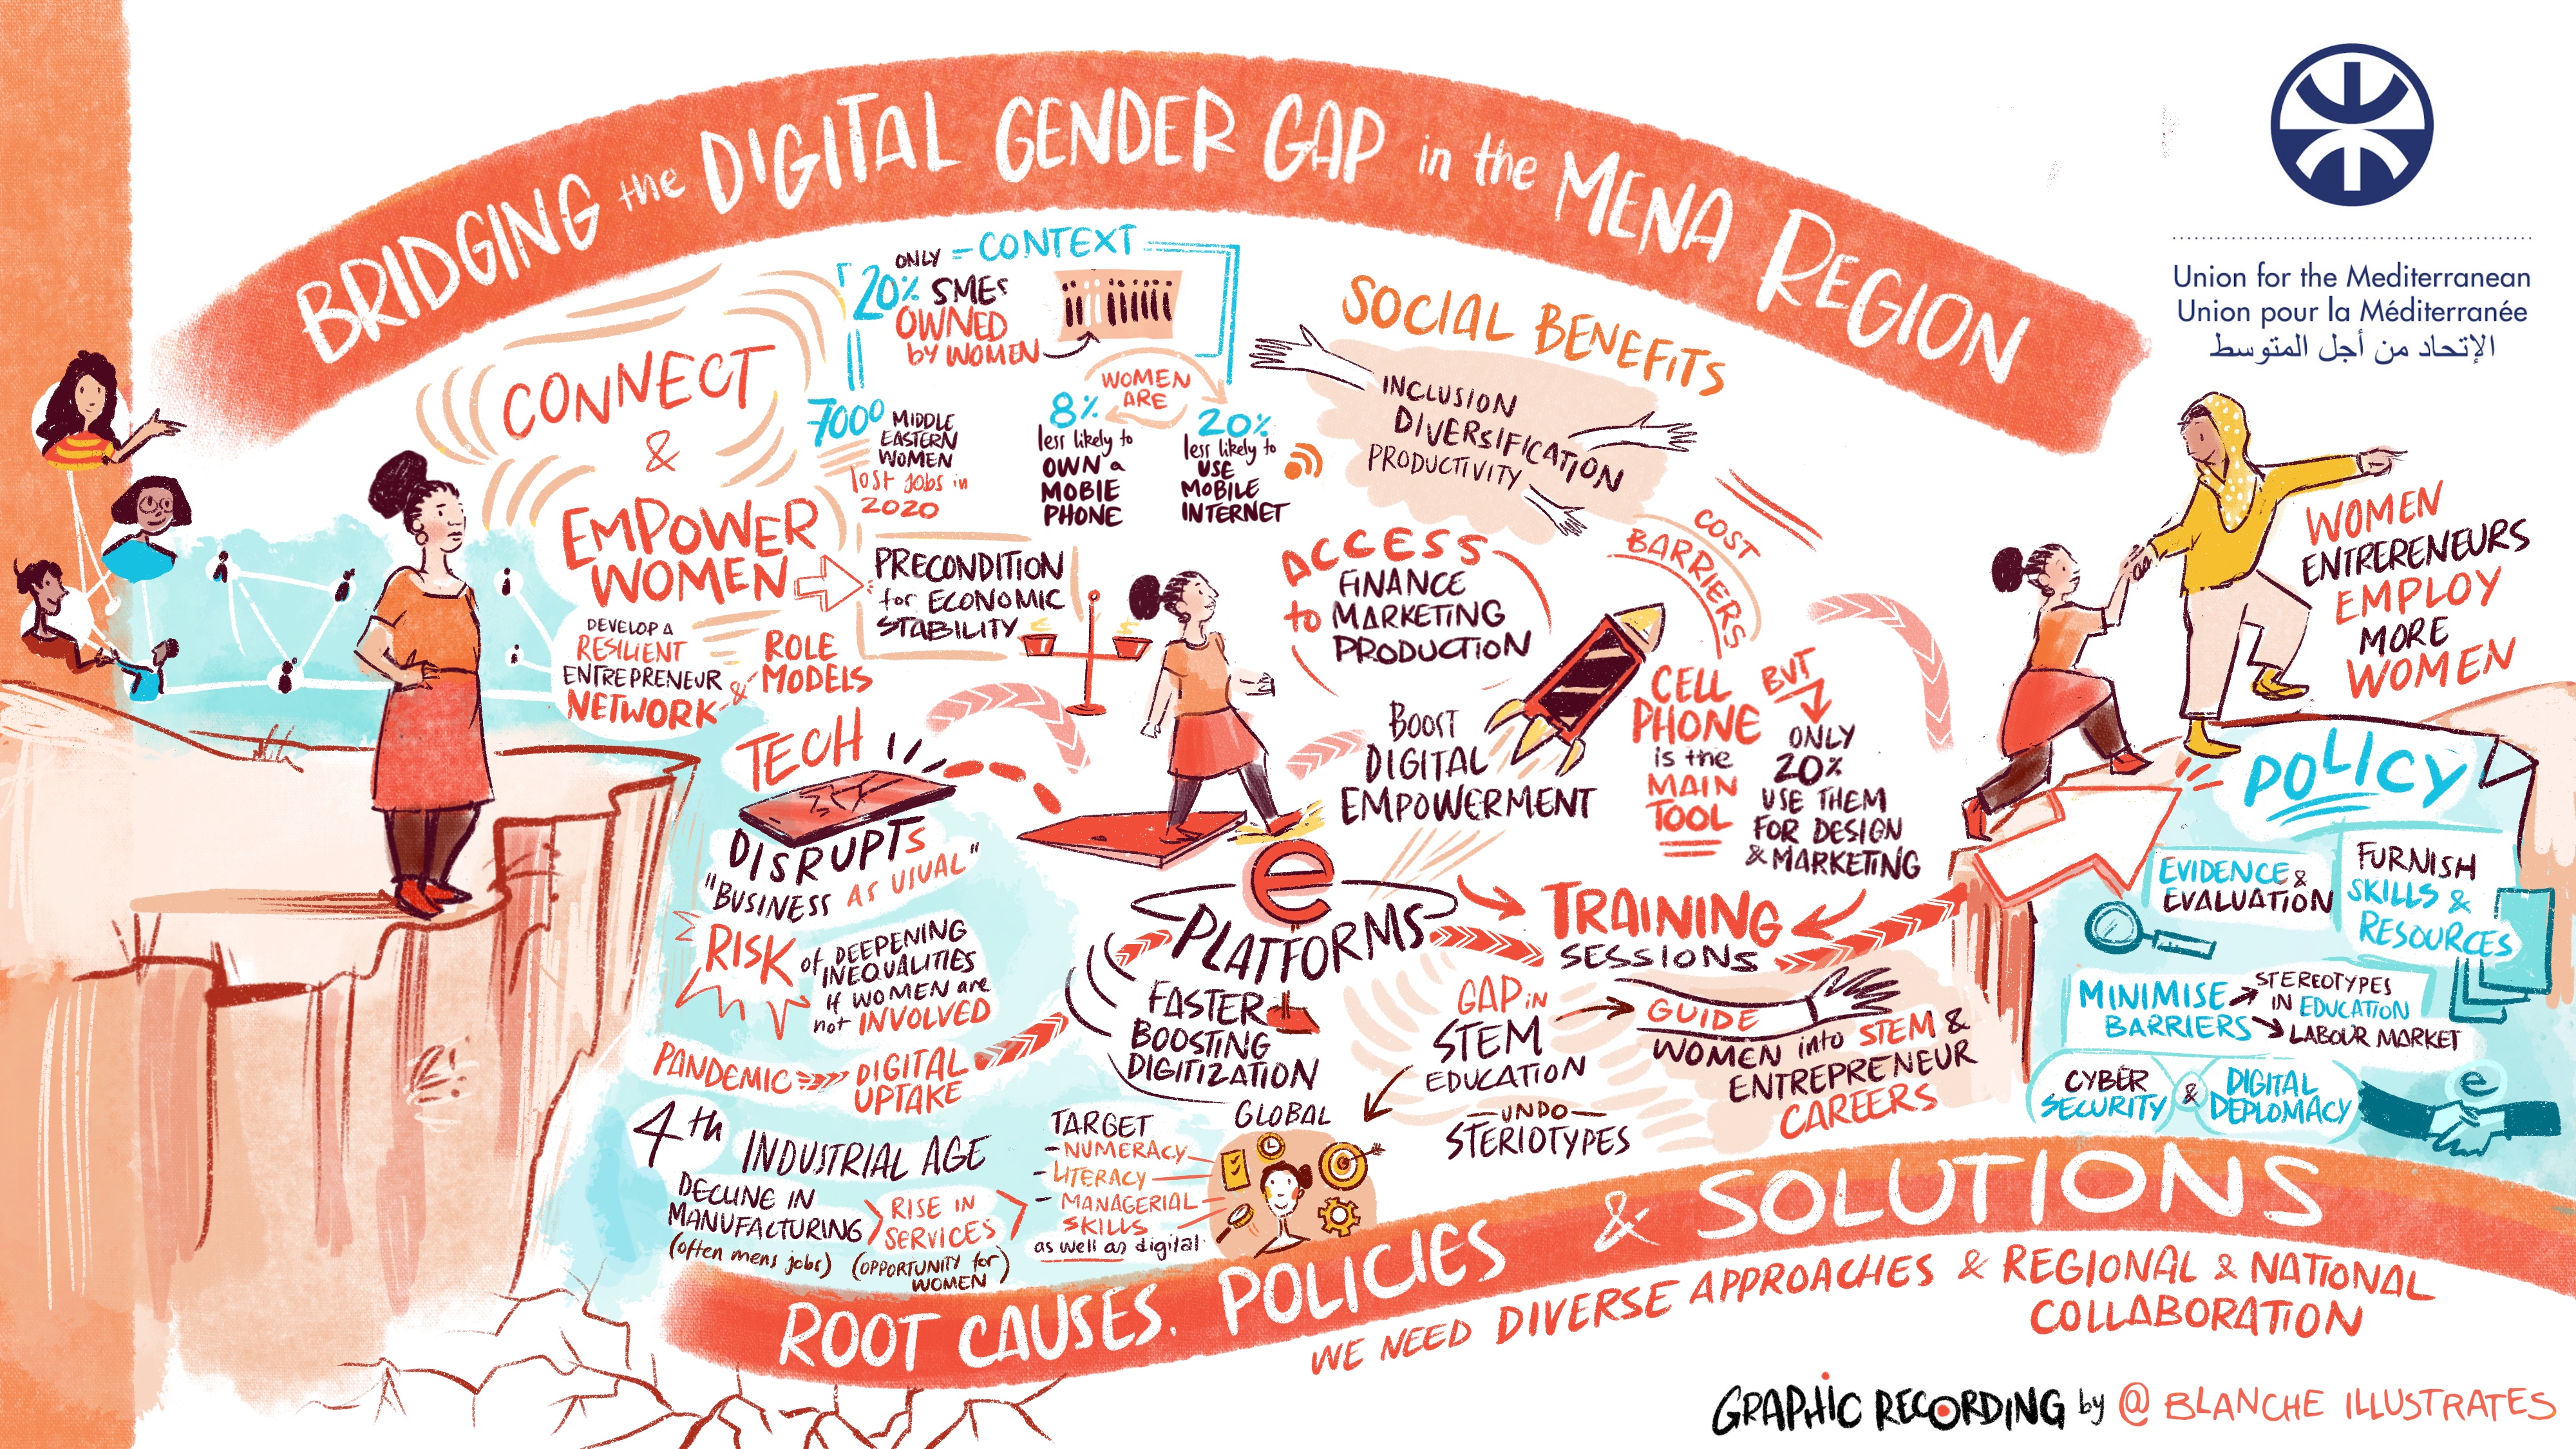 BRIDGING the DIGITAL GENDER GAP in the MENA REGION
Union for the Mediterranean
Union pour la Méditerranée
الإتحاد من أجل المتوسط
CONNECT
&
EMPOWER
WOMEN
DEVELOP A
RESILIENT
ENTREPRENEUR
NETWORK
& ROLE
MODELS
PRECONDITION
for ECONOMIC
STABILITY
CONTEXT
ONLY
20% SMEs
OWNED
by WOMEN
7000 MIDDLE
EASTERN
WOMEN
lost jobs in
2020
WOMEN
ARE
8%
less likely to
OWN a
MOBIE
PHONE
20%
less likely to
USE
MOBILE
INTERNET
SOCIAL BENEFITS
INCLUSION
DIVERSIFICATION
PRODUCTIVITY
ACCESS
to
FINANCE
MARKETING
PRODUCTION
COST
BARRIERS
BOOST
DIGITAL
EMPOWERMENT
CELL
PHONE
is the
MAIN
TOOL
BUT
ONLY
20%
USE THEM
FOR DESIGN
& MARKETING
WOMEN
ENTRERENEURS
EMPLOY
MORE
WOMEN
TECH
DISRUPTS
"BUSINESS AS USUAL"
RISK of DEEPENING
INEQUALITIES
if WOMEN are
not INVOLVED
PANDEMIC DIGITAL
UPTAKE
4th INDUSTRIAL AGE
DECLINE IN
MANUFACTURING
(often mens jobs)
RISE IN
SERVICES
(OPPORTUNITY for)
WOMEN
TARGET
- NUMERACY
- LITERACY
- MANAGERIAL
SKILLS
as well as digital
e
PLATFORMS
FASTER
BOOSTING
DIGITIZATION
GLOBAL
TRAINING
SESSIONS
GAP in
STEM
EDUCATION
UNDO
STERIOTYPES
GUIDE
WOMEN into STEM &
ENTREPRENEUR
CAREERS
POLICY
EVIDENCE &
EVALUATION
FURNISH
SKILLS &
RESOURCES
MINIMISE
BARRIERS
STEREOTYPES
IN EDUCATION
LABOUR MARKET
CYBER
SECURITY
&
DIGITAL
DEPLOMACY
e
ROOT CAUSES. POLICIES & SOLUTIONS
WE NEED DIVERSE APPROACHES & REGIONAL & NATIONAL
COLLABORATION
GRAPHIC RECORDING by @ BLANCHE ILLUSTRATES